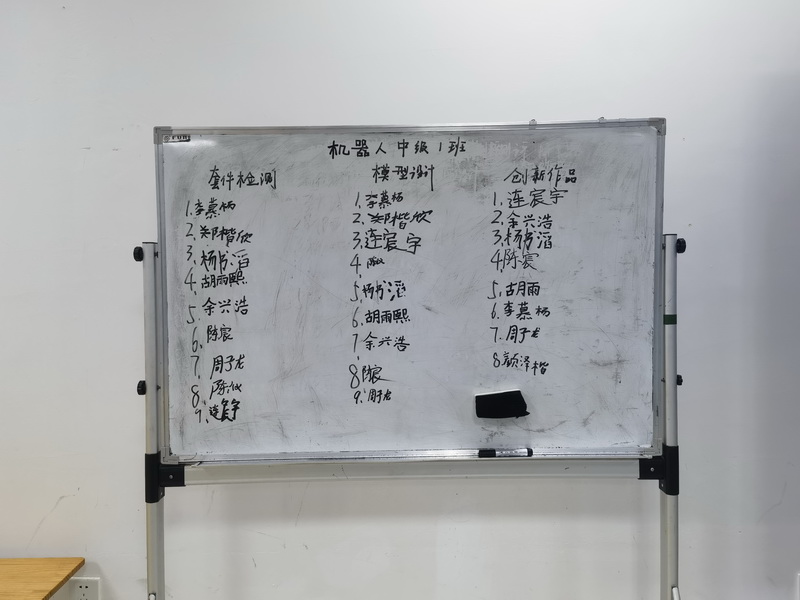 机器人中级1班
套件检测
1.李慕柄
2.郑楷欣
3.杨书滔
4.胡雨熙
5.余兴浩
6.陈宸
7.周子龙
8.陈仪
9.连宸宇
模型设计
1.李慕柄
2.郑楷欣
3.连宸宇
4.陈仪
5.杨书滔
6.胡雨熙
7余兴浩
8陈宸
9.周子龙
创新作品
1.连宸宇
2.余兴浩
3.杨书滔
4.陈宸
5.胡月雨
6.李慕柄
7.周子龙
8颜泽楷